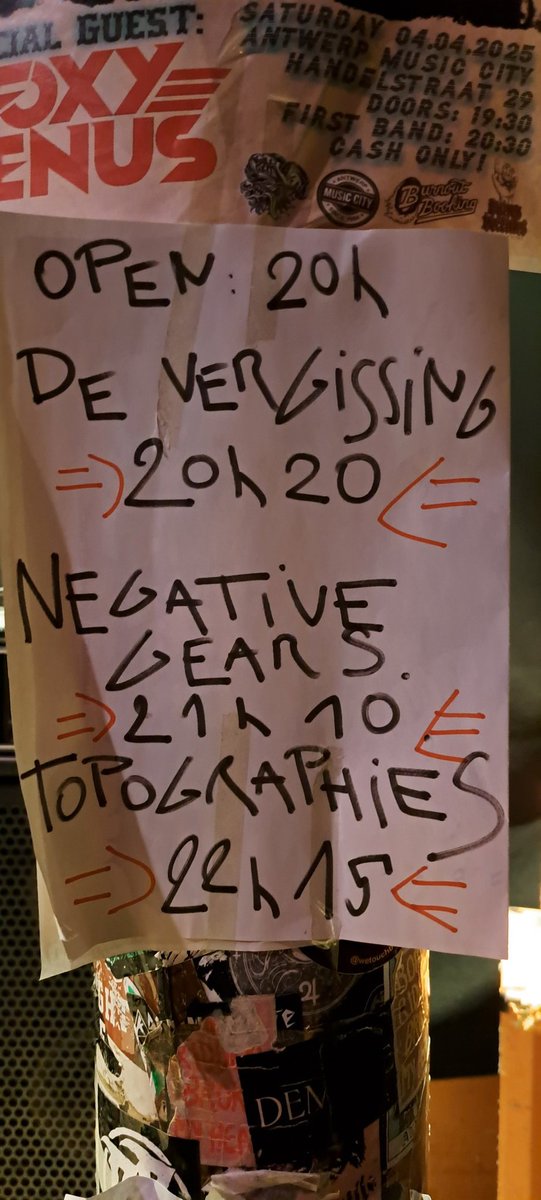 CIAL GUEST:
OXY
ENUS
SATURDAY 04.04.2025
ANTWERP MUSIC CITY
HANDELSTRAAT 29
DOORS: 19:30
FIRST BAND: 20:30
CASH ONLY!
MUSIC CITY
Burnout
Booking
OPEN: 20h
DE VERGISSING
⇒ 20h20 ⇐
NEGATIVE
GEARS.
⇒ 21h 10 ⇐
TOPOGRAPHIES
⇒ 22h15 ⇐
@wetouch
DEM